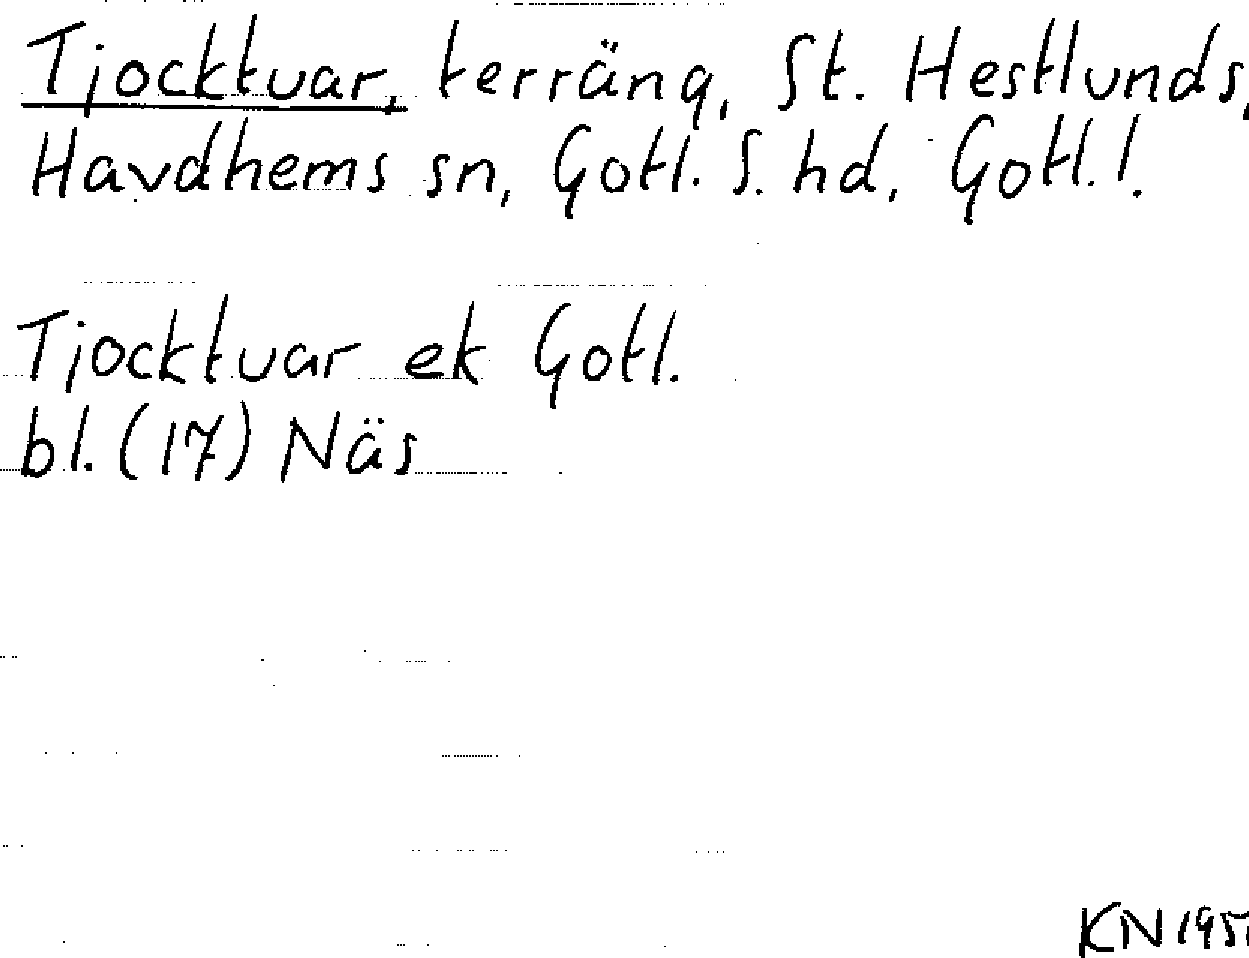 Tjocktuar, terräng, St. Hestlunds,
Havdhems sn, Gotl. S. hd, Gotl. l.
Tjocktuar ek Gotl.
bl. (17) Näs
KN 1951